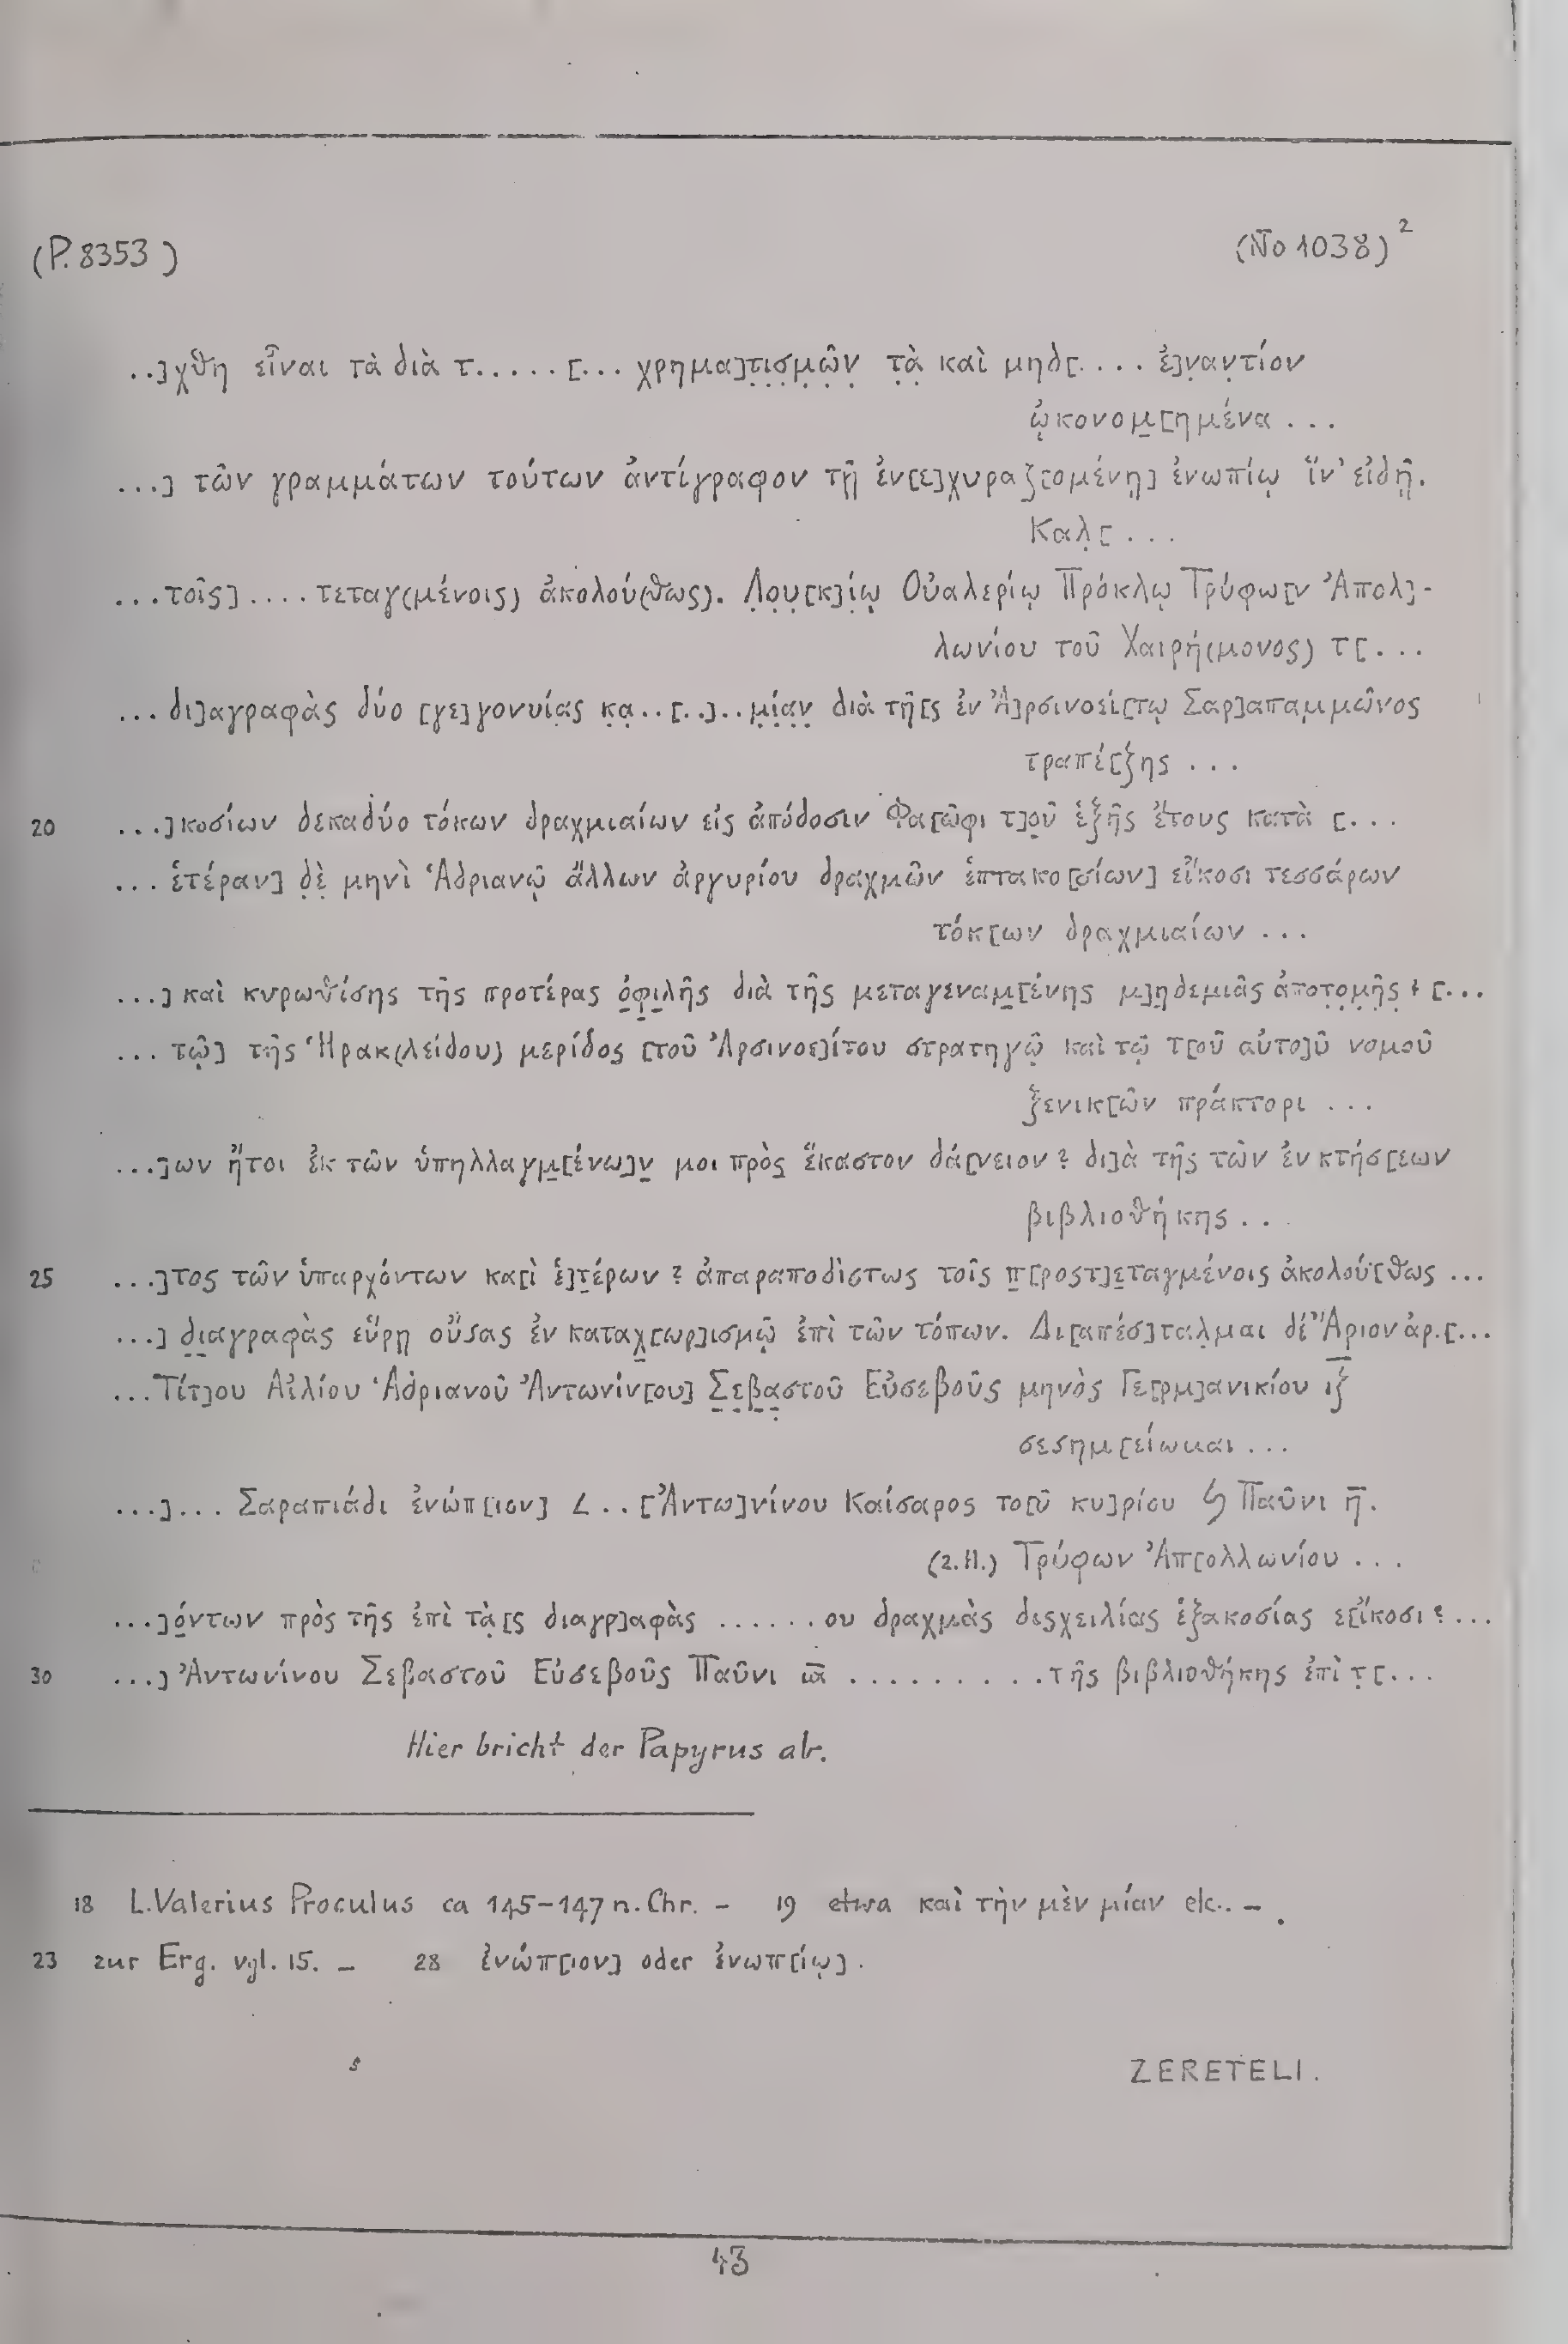 (P. 8353)
(No 1038)²
..]χθη εἶναι τὰ διὰ τ.....[... χρημα]τ̣ι̣σ̣μ̣ῶ̣ν̣ τ̣ὰ̣ καὶ μηδ[.... ἐ]ν̣αν̣τίον
ᾠ̣κονομ̣[ημένα ...
...] τῶν γραμμάτων τούτων ἀντίγραφον τῇ ἐν[ε]χυραζ[ομένῃ] ἐνωπίῳ ἵν' εἰδῇ.
Καλ̣[...
...τοῖς].... τεταγ(μένοις) ἀκολού(θως). Λ̣ο̣υ̣[κ]ί̣ῳ̣ Οὐαλερίῳ Πρόκλῳ Τρύφω[ν Ἀπολ]-
λωνίου τοῦ Χαιρή(μονος) τ[...
... δι]αγραφὰς δύο [γε]γονυίας κ̣α̣..[..]..μ̣ί̣α̣ν̣ διὰ τῆ[ς ἐν Ἀ]ρσινοεί[τῳ Σαρ]απαμμῶνος
τραπέ[ζης ...
20 ...]κοσίων δεκαδύο τόκων δραχμιαίων εἰς ἀπόδοσιν Φα[ῶφι τ]ο̣ῦ̣ ἑξῆς ἔτους κατὰ [...
... ἑτέραν] δ̣ὲ̣ μηνὶ Ἁδριανῷ ἄλλων ἀργυρίου δραχμῶν ἑπτακο[σίων] εἴκοσι τεσσάρων
τόκ[ων δραχμιαίων ...
...] καὶ κυρωθίσης τῆς προτέρας ὀ̣φ̣ι̣λῆς διὰ τῆς μεταγεναμ̣[ένης μ]η̣δεμιᾶς ἀποτ̣ο̣μ̣ῆ̣ς̣ + [...
... τῷ] τῆς Ἡρακ(λείδου) μερίδος [τοῦ Ἀρσινοε]ίτου στρατηγῷ καὶ τῷ τ[οῦ αὐτο]ῦ νομοῦ
ξενικ[ῶν πράκτορι ...
...]ων ἤτοι ἐκ τῶν ὑπηλλαγμ̣[ένω]ν̣ μοι πρὸς ἕκαστον δά[νειον? δι]ὰ τῆς τῶν ἐνκτήσ[εων
βιβλιοθήκης ..
25 ...]τος τῶν ὑπαρχόντων κα[ὶ ἑ]τ̣έρων? ἀπαραποδίστως τοῖς π̣[ροστ]ε̣ταγμένοις ἀκολού[θως ...
...] δ̣ι̣αγραφὰς εὕρῃ οὔσας ἐν καταχ̣[ωρ]ισμῷ ἐπὶ τῶν τόπων. Δι[απέσ]ταλ̣μαι δέ Ἄριον ἀρ.[...
...Τίτ]ου Αἰλίου Ἁδριανοῦ Ἀντωνίν[ου] Σ̣ε̣β̣α̣στοῦ Εὐσεβοῦς μηνὸς Γε[ρμ]ανικίου ιξ̅
σεσημ[είωμαι ...
...]... Σαραπιάδι ἐνώπ[ιον] L .. [Ἀντω]νίνου Καίσαρος το[ῦ κυ]ρίου ϟ Παῦνι η̅.
(2.H.) Τρύφων Ἀπ[ολλωνίου ...
...]ό̣ντων πρὸς τῆς ἐπὶ τὰ̣[ς διαγρ]αφὰς ......ου δραχμὰς δισχειλίας ἑξακοσίας ε[ἴκοσι?...
30 ...] Ἀντωνίνου Σεβαστοῦ Εὐσεβοῦς Παῦνι ια̅ ..........τῆς βιβλιοθήκης ἐπὶ τ̣[...
Hier bricht der Papyrus ab.
18 L.Valerius Proculus ca 145–147 n. Chr. – 19 etwa καὶ τὴν μὲν μίαν etc.. –
23 zur Erg. vgl. 15. – 28 ἐνώπ[ιον] oder ἐνωπ[ίῳ].
ZERETELI.
43